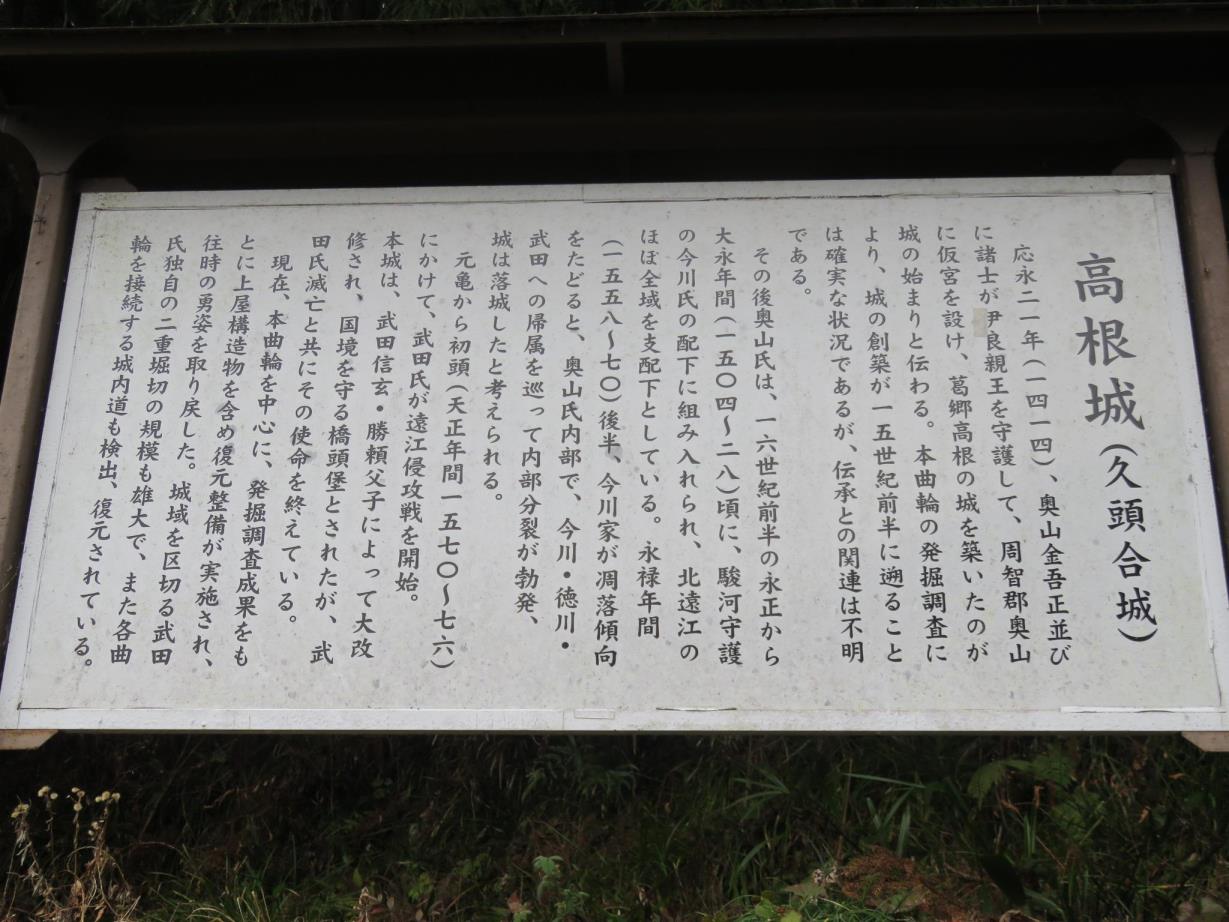 高根城(久頭合城)
応永二一年(一四一四)、奥山金吾正並び
に諸士が尹良親王を守護して、周智郡奥山
に仮宮を設け、葛郷高根の城を築いたのが
城の始まりと伝わる。本曲輪の発掘調査に
より、城の創築が一五世紀前半に遡ること
は確実な状況であるが、伝承との関連は不明
である。
その後奥山氏は、一六世紀前半の永正から
大永年間(一五〇四〜二八)頃に、駿河守護
の今川氏の配下に組み入れられ、北遠江の
ほぼ全域を支配下としている。永禄年間
(一五五八〜七〇)後半、今川家が凋落傾向
をたどると、奥山氏内部で、今川・徳川・
武田への帰属を巡って内部分裂が勃発、
城は落城したと考えられる。
元亀から初頭(天正年間一五七〇〜七六)
にかけて、武田氏が遠江侵攻戦を開始。
本城は、武田信玄・勝頼父子によって大改
修され、国境を守る橋頭堡とされたが、武
田氏滅亡と共にその使命を終えている。
現在、本曲輪を中心に、発掘調査成果をも
とに上屋構造物を含め復元整備が実施され、
往時の勇姿を取り戻した。城域を区切る武田
氏独自の二重堀切の規模も雄大で、また各曲
輪を接続する城内道も検出、復元されている。